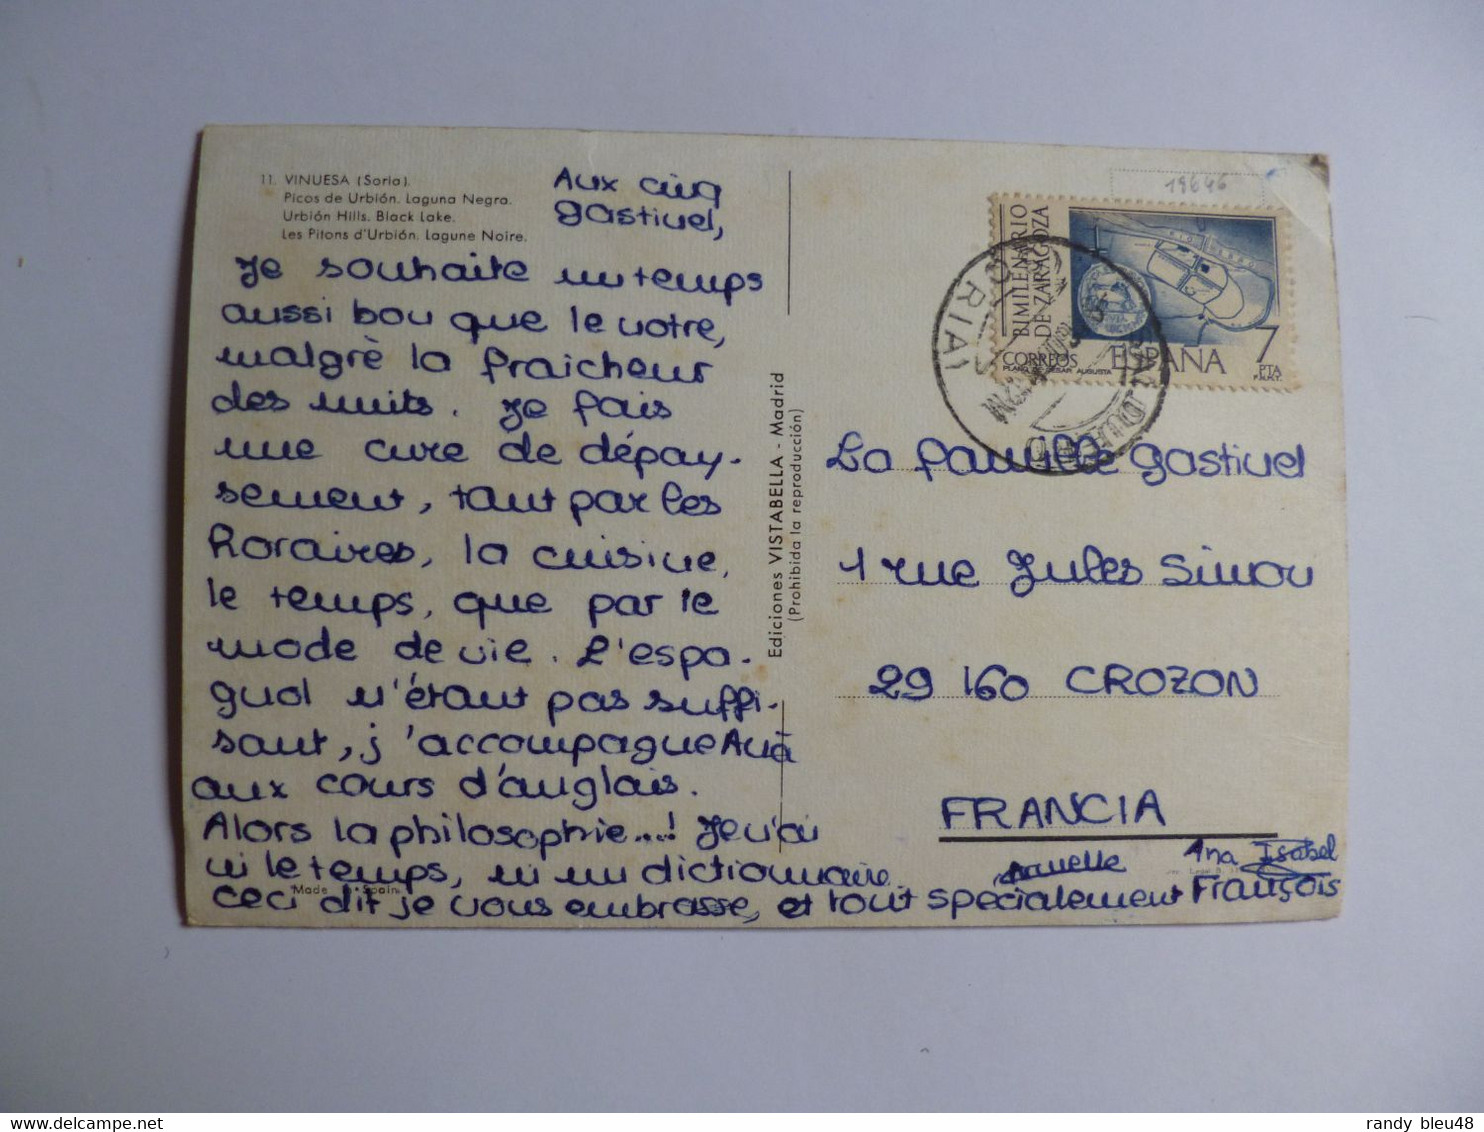 11. VINUESA (Soria).
Picos de Urbión. Laguna Negra.
Urbión Hills. Black Lake.
Les Pitons d'Urbión. Lagune Noire.
Aux cinq
Gastinel,
Je souhaite un temps
aussi bon que le votre,
malgrè la fraicheur
des nuits. Je fais
une cure de dépay-
sement, tant par les
horaires, la cuisine,
le temps, que par le
mode de vie. L'espa-
gnol n'étant pas suffi-
sant, j'accompagne Ana
aux cours d'anglais.
Alors la philosophie...! Je n'ai
ni le temps, ni un dictionnaire.
ceci dit je vous embrasse, et tout spécialement François
Armelle
Ana Isabel
Made in Spain
Ediciones VISTABELLA - Madrid
(Prohibida la reproducción)
19646
BIMILENARIO
DE ZARAGOZA
CORREOS
PLANO DE CESAR AUGUSTA
ESPAÑA
7
PTA
F.N.M.T.
SORIA
La famille Gastinel
1 rue Jules Simon
29 160 CROZON
FRANCIA
randy bleu48